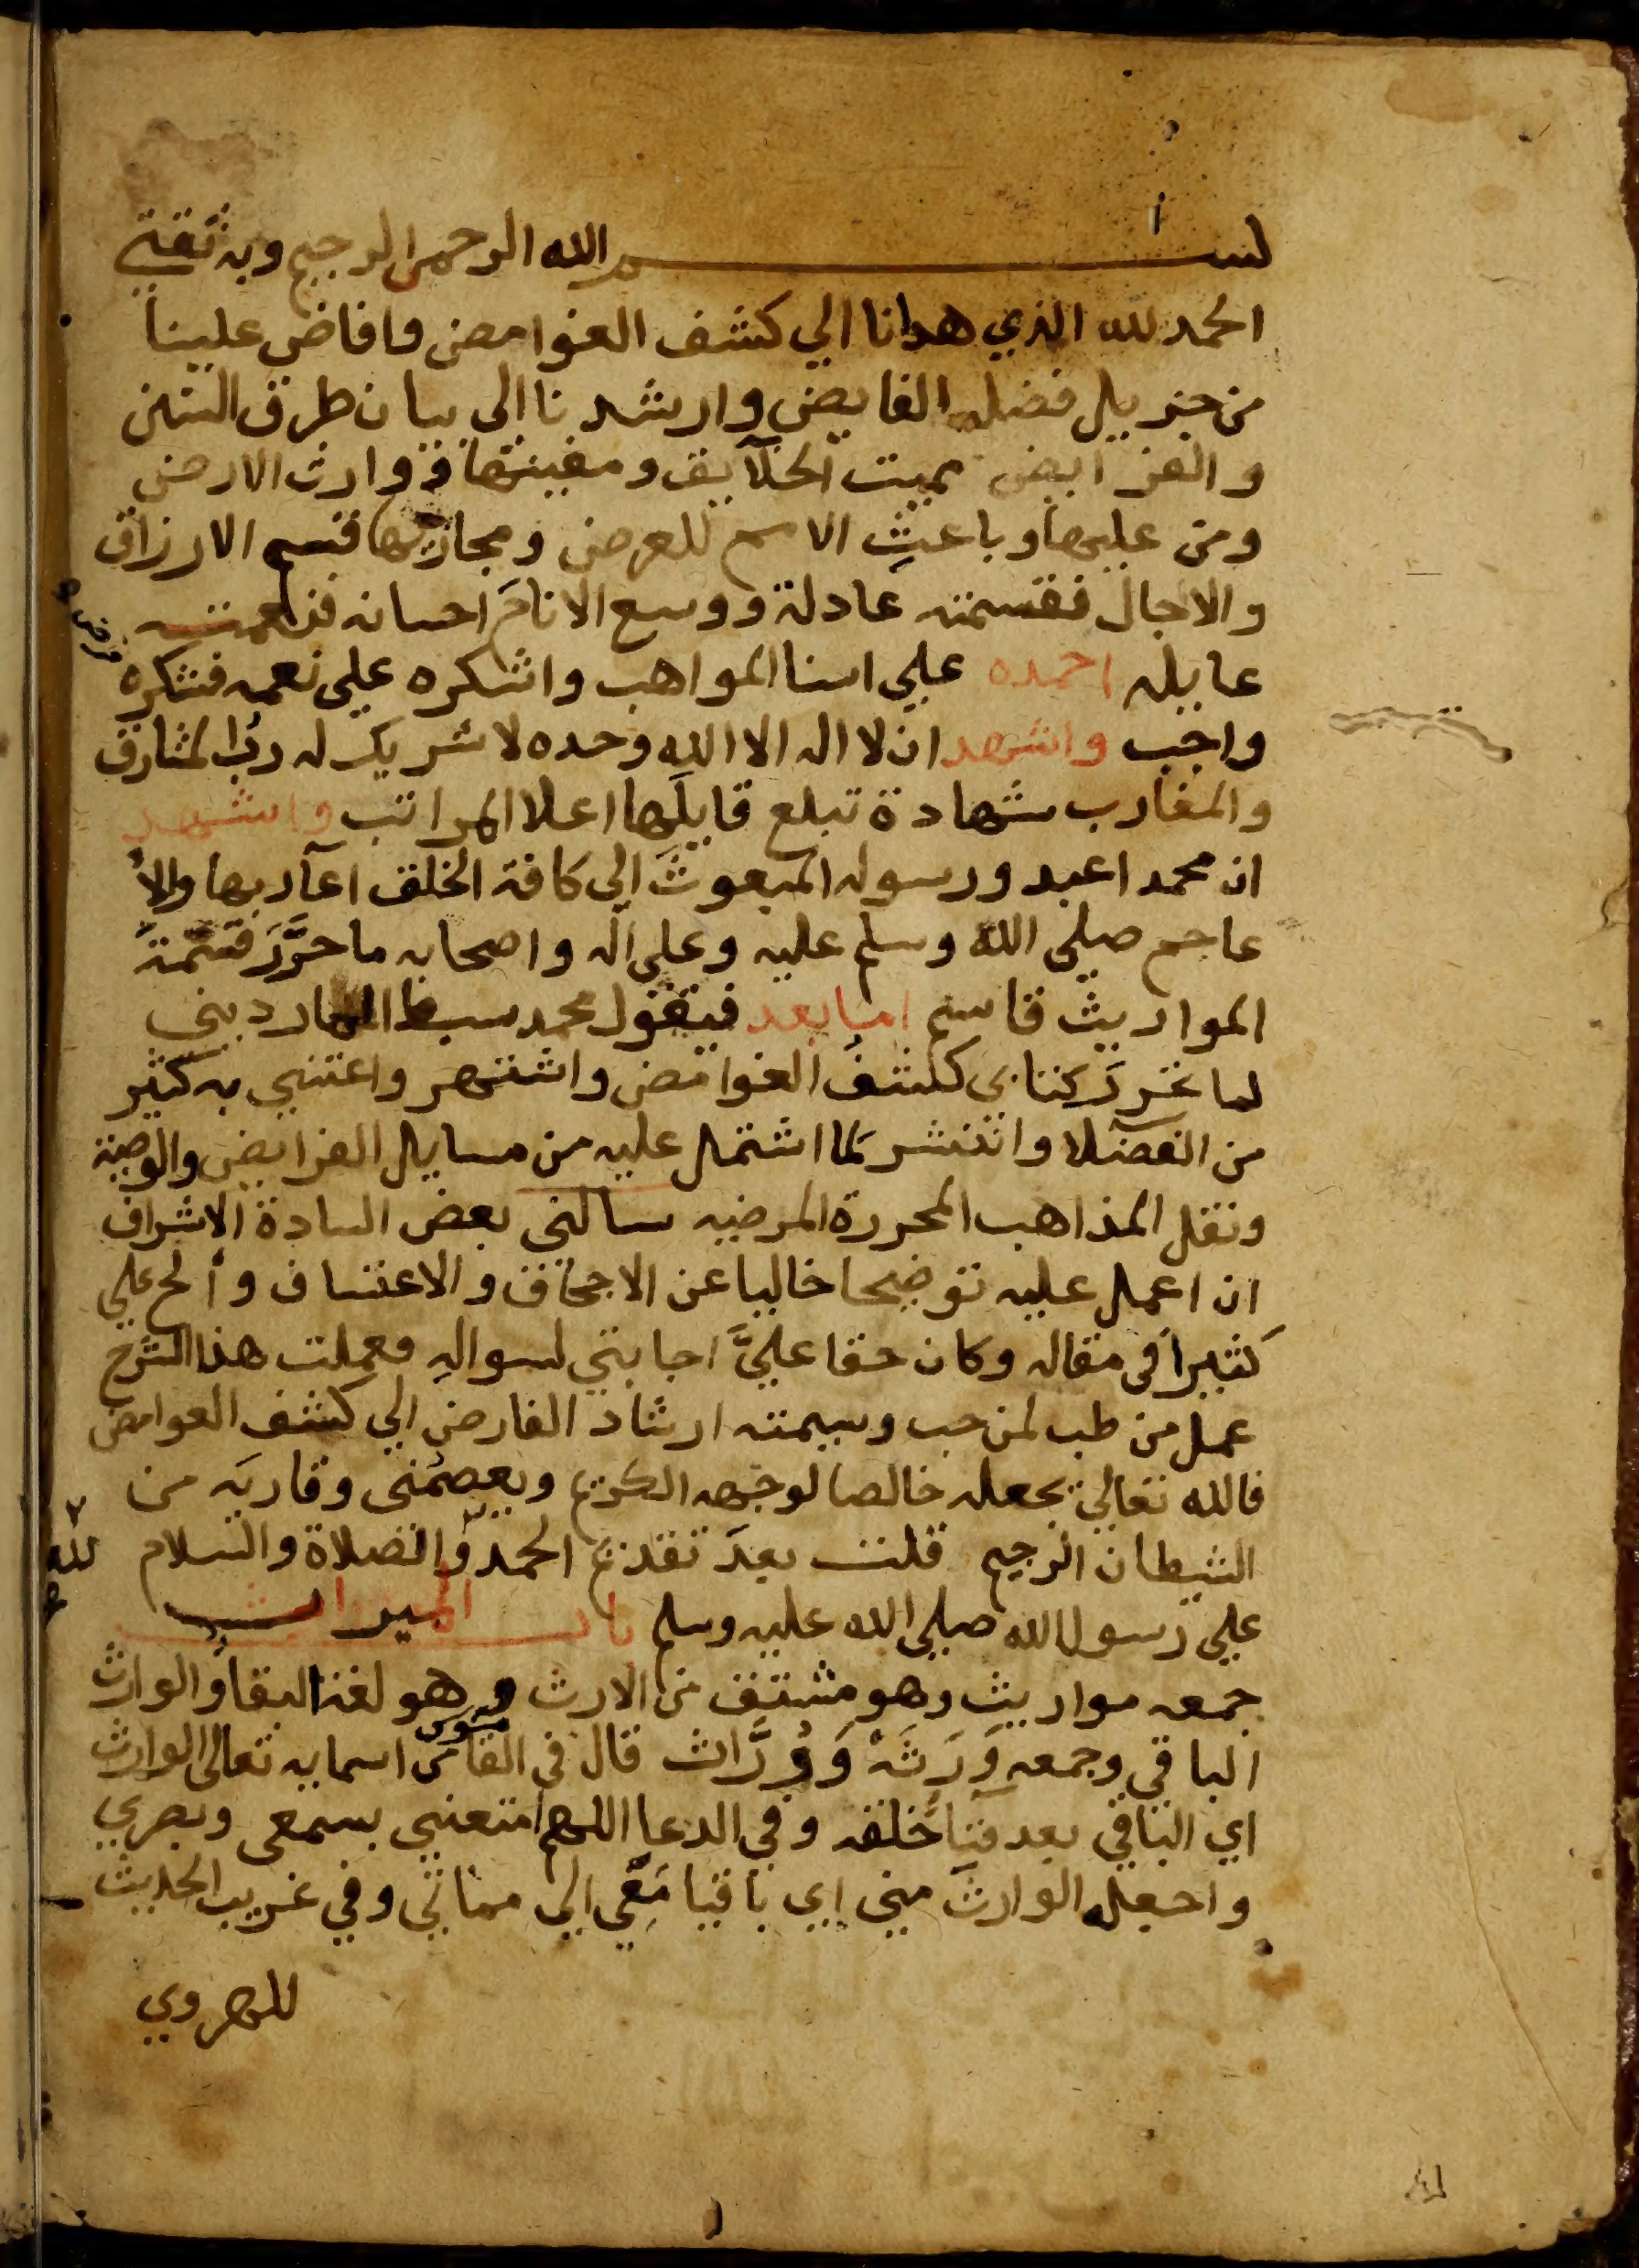 بسم الله الرحمن الرحيم وبه ثقتي
الحمد لله الذي هدانا الي كشف الغوامض وافاض علينا
من جزيل فضله الفايض وارشدنا الى بيان طرق السنن
والفرايض مميت الخلايق ومفنيها ووارث الارض
ومن عليها وباعث الامم للعرض ومجازيها قسم الارزاق
والاجال فقسمته عادلة ووسع الانام احسانه
عايله احمده علي اسنا المواهب واشكره علي نعمه فشكره
واجب واشهد ان لا اله الا الله وحده لا شريك له رب المشارق
والمغارب شهادة تبلغ قايلها اعلا المراتب واشهد
ان محمدا عبد ورسوله المبعوث الي كافة الخلق اعاربها والا
عاجم صلى الله وسلم عليه وعلي اله واصحابه ما حرر قسمة
المواريث قاسم اما بعد فيقول محمد سبط المارديني
لما كتابي كشف الغوامض واشتهر واعتني به كثير
من الفضلا وانتشر لما اشتمل عليه من مسايل الفرايض والوصية
ونقل المذاهب المحررة المرضيه سالني بعض السادة الاشراف
ان اعمل عليه توضيحا خاليا عن الاجحاف والاعتساف وألح علي
كثيرا في مقاله وكان حقا عليَّ اجابتي لسواله فعملت هذا الشرح
عمل من طب لمن حب وسميته ارشاد الفارض الي كشف الغوامض
فالله تعالي يجعله خالصا لوجهه الكريم ويعصمني وقاريه من
الشيطان الرجيم قلت بعد تقديم الحمد والصلاة والسلام
لله
علي رسول الله صلي الله عليه وسلم باب الميراث
جمعه مواريث وهو مشتق من الارث وهو لغة البقا والوارث
الباقي وجمعه وَرَثَة وَوُرَّاث قال في القاموس من اسمايه تعالى الوارث
اي الباقي بعد فنا خلقه وفي الدعا اللهم امتعني بسمعي وبصري
واجعله الوارث مني اي باقيا معي الي مماتي وفي غريب الحديث
للهروي